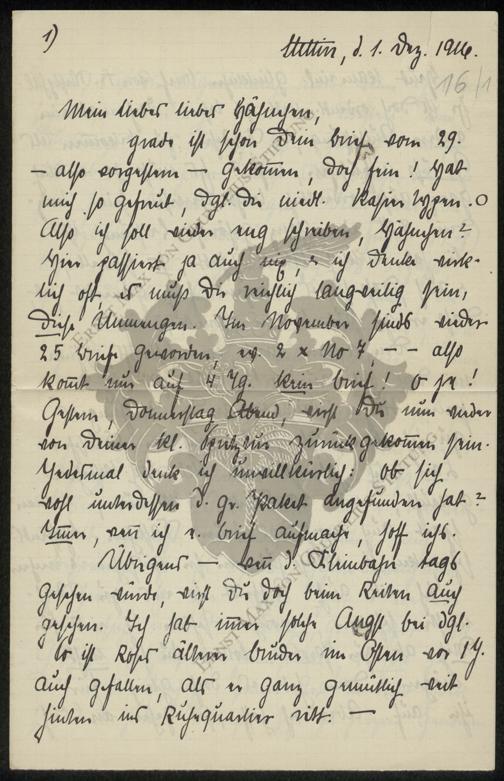 1)
Stettin, d. 1. Dez. 1916.
16/1
Mein liebes liebes Hähnchen,
grade ist schon Dein Brief vom 29.
– also vorgestern – gekommen, doch fein! Hat
mich so gefreut, dgl. die niedl.
Also ich soll wieder eng schreiben, Hähnchen?
Hier passiert ja auch nix, & ich denke wirk-
lich oft es muß Dir reichlich langweilig sein,
diese Unmengen. Im November sinds wieder
25 Briefe geworden, ev. 2 x No 7 – – also
kom̅t nur auf 4 Tg. kein Brief! O je!
Gestern, Donnerstag Abend, wirst Du nun wieder
von Deiner kl. Spritztour zurückgekommen sein.
Jedesmal denk ich unwillkürlich: ob sich
wohl unterdessen d. gr. Paket angefunden hat?
Im̅er, wen̅ ich e. Brief aufmache, hoff ichs.
Übrigens – wen̅ d. Kleinbahn tags
gesehen würde, wirst Du doch beim Reiten auch
gesehen. Ich hab im̅er solche Angst bei dgl.
So ist Roses älterer Bruder im Osten vor 1 J.
auch gefallen, als er ganz gemütlich weit
hinten ins Ruhequartier ritt. –
ERNST MAX VON